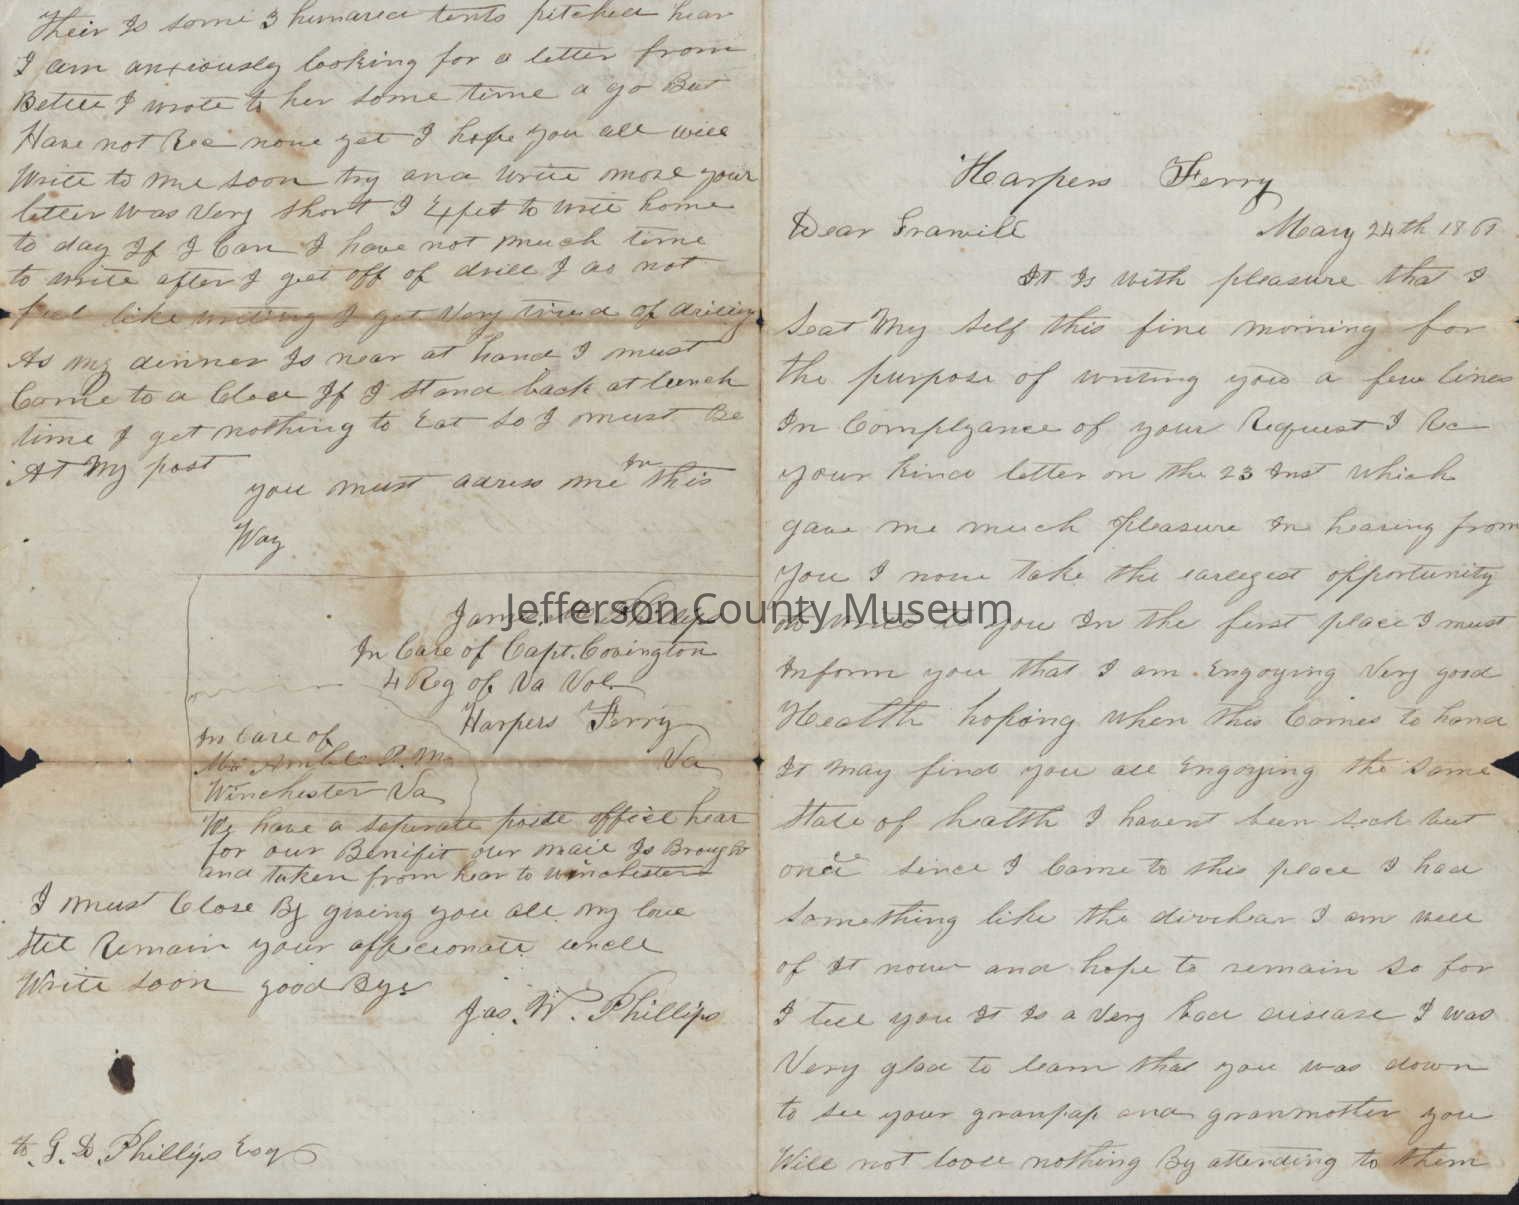 Harpers Ferry
Dear Granvill May 24th 1861
It Is with pleasure that I
Seat My Self this fine morning for
the purpose of writing you a few lines
In Complyance of your Request I Rec
your kind letter on the 23 Inst which
gave me much pleasure In hearing from
you I now take the earlyest opportunity
to write to you In the first place I must
Inform you that I am Engoying Very good
Health hoping when this Comes to hand
It may find you all Engoying the Same
State of health I havent been Sick but
once since I Came to this place I had
Something like the I am well
of It now and hope to remain So for
I tell you It Is a Very bad disease I was
Very glad to learn that you was down
to see your granpap and granmother you
Will not loose nothing By attending to them
Their Is some 3 hundred tents pitched hear
I am anxiously looking for a letter from
Bettie I wrote to her some time a go But
Have not Rec none yet I hope you all will
Write to me soon try and write more your
letter was Very short I Expet to write home
to day If I Can I have not much time
to write after I get off of drill I do not
feel like writing I get Very tired of drilling
As my dinner Is near at hand I must
Come to a Close If I Stand back at lunch
time I get nothing to Eat So I must Be
At My post
you must adress me In this
Way
James W. Phillips
In Care of Capt. Covington
4 Reg of Va Vol
Harpers Ferry
Va
In Care of
Mr P. M
Winchester Va
We have a seperate poste office hear
for our Benifit our mail Is Brought
and taken from hear to Winchester
I must Close By giving you all my love
Still Remain your affecionate uncle
Write soon good Bye
Jas. W. Phillips
to. G. D. Phillips Esq
Jefferson County Museum